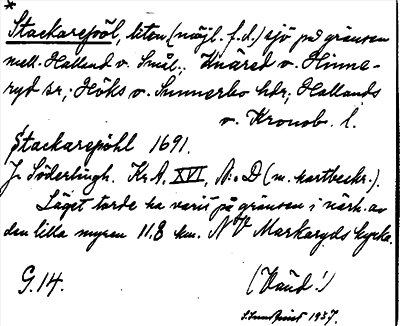 *
Stackarepöl, liten (möjl. f.d.) sjö på gränsen
mell. Halland o. Smål., Knäred o. Hinne-
ryd sr, Höks o. Sunnerbo hdr, Hallands
o. Kronob. l.
Stackarepöhl 1691.
J. Söderlingh. Kr.A. XVI, N:o D (m. kartbeskr.).
Läget torde ha varit på gränsen i närh. av
den lilla myren 11.8 km. NV Markaryds kyrka.
G.14. (Vänd!)
1937.